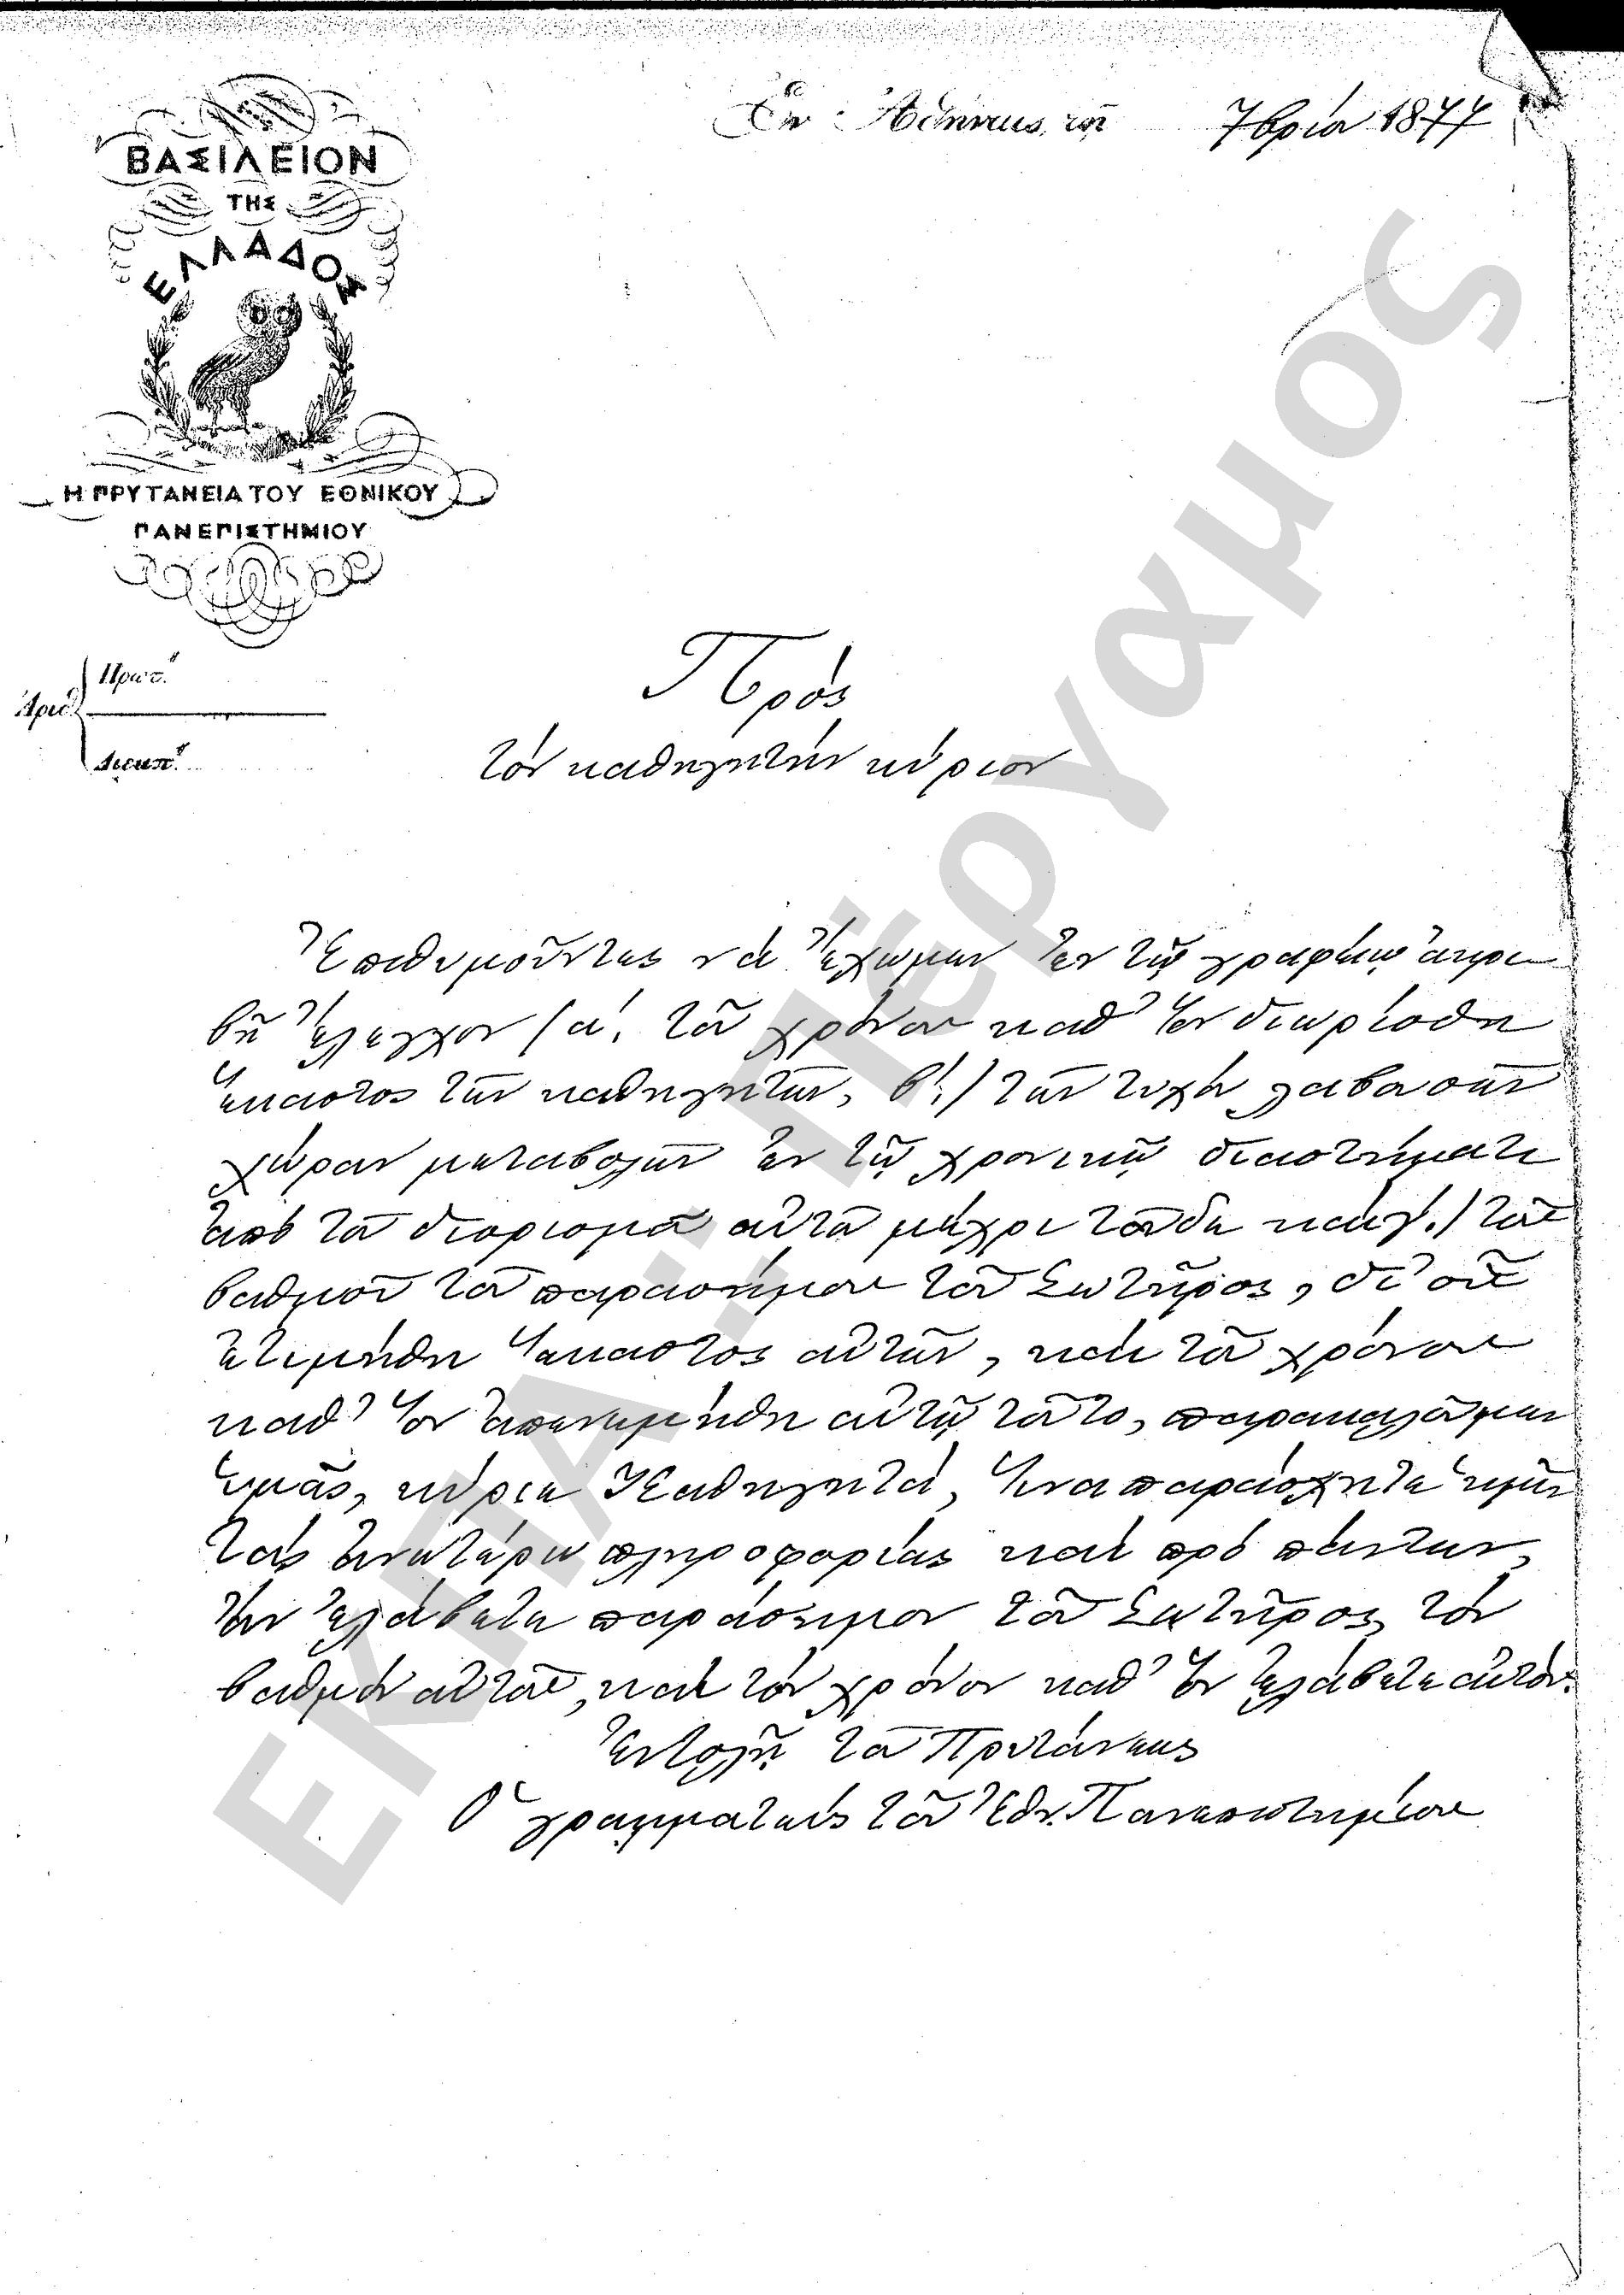 Ἐν Ἀθήναις, τῇ 7βρίου 1877
ΒΑΣΙΛΕΙΟΝ
ΤΗΣ
ΕΛΛΑΔΟΣ
Η ΠΡΥΤΑΝΕΙΑ ΤΟΥ ΕΘΝΙΚΟΥ
ΠΑΝΕΠΙΣΤΗΜΙΟΥ
Πρωτ.
Ἀριθ.
Διεκπ.
Πρὸς
τὸν καθηγητὴν κύριον
Ἐπιθυμοῦντες νὰ ἔχωμεν ἐν τῷ γραφείῳ ἀκρι
βῆ ἔλεγχον (α΄. τοῦ χρόνου καθ' ὃν διωρίσθη
ἕκαστος τῶν καθηγητῶν, β΄.) τῶν τυχὸν λαβουσῶν
χώραν μεταβολῶν ἐν τῷ χρονικῷ διαστήματι
ἀπὸ τοῦ διορισμοῦ αὐτοῦ μέχρι τοῦδε καὶ γ.) τοῦ
βαθμοῦ τοῦ παρασήμου τοῦ Σωτῆρος, δι' οὗ
ἐτιμήθη ἕκαστος αὐτῶν, καὶ τοῦ χρόνου
καθ' ὃν ἀπενεμήθη αὐτῷ τοῦτο, παρακαλοῦμεν
ὑμᾶς, κύριε Καθηγητά, ἵνα παράσχητε ἡμῖν
τὰς ἀνωτέρω πληροφορίας καὶ πρὸ πάντων,
ἂν ἐλάβετε παράσημον τοῦ Σωτῆρος, τὸν
βαθμὸν αὐτοῦ, καὶ τὸν χρόνον καθ' ὃν ἐλάβετε αὐτόν.
Ἐντολῇ τοῦ Πρυτάνεως
Ὁ γραμματεὺς τοῦ Ἐθν. Πανεπιστημίου
ΕΚΠΑ - Πέργαμος